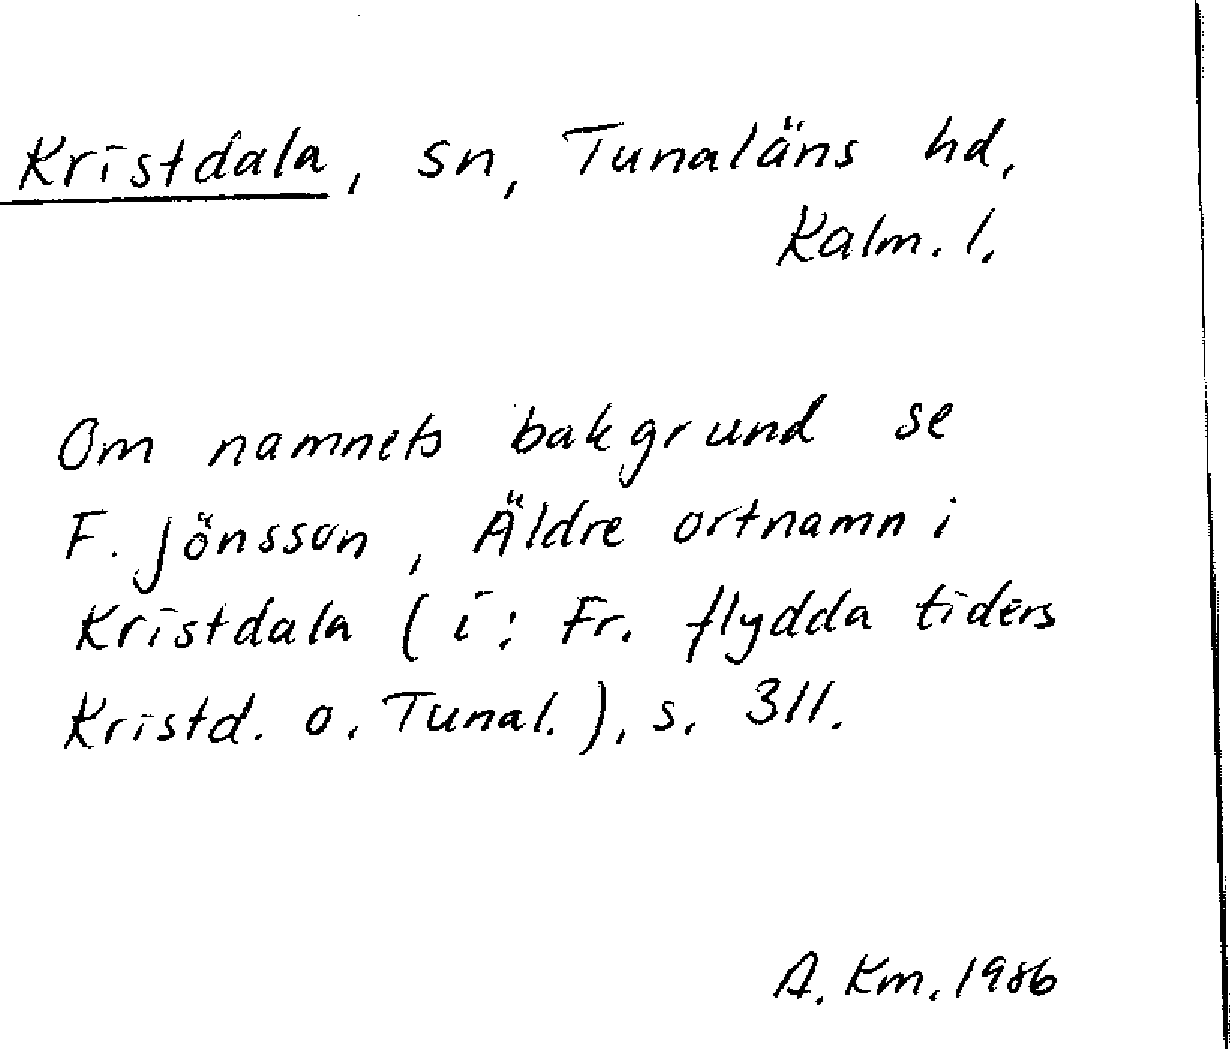 Kristdala, sn, Tunaläns hd,
Kalm. l.
Om namnets bakgrund se
F. Jönsson, Äldre ortnamn i
Kristdala (i: Fr. flydda tiders
Kristd. o. Tunal.), s. 311.
A. Km. 1986